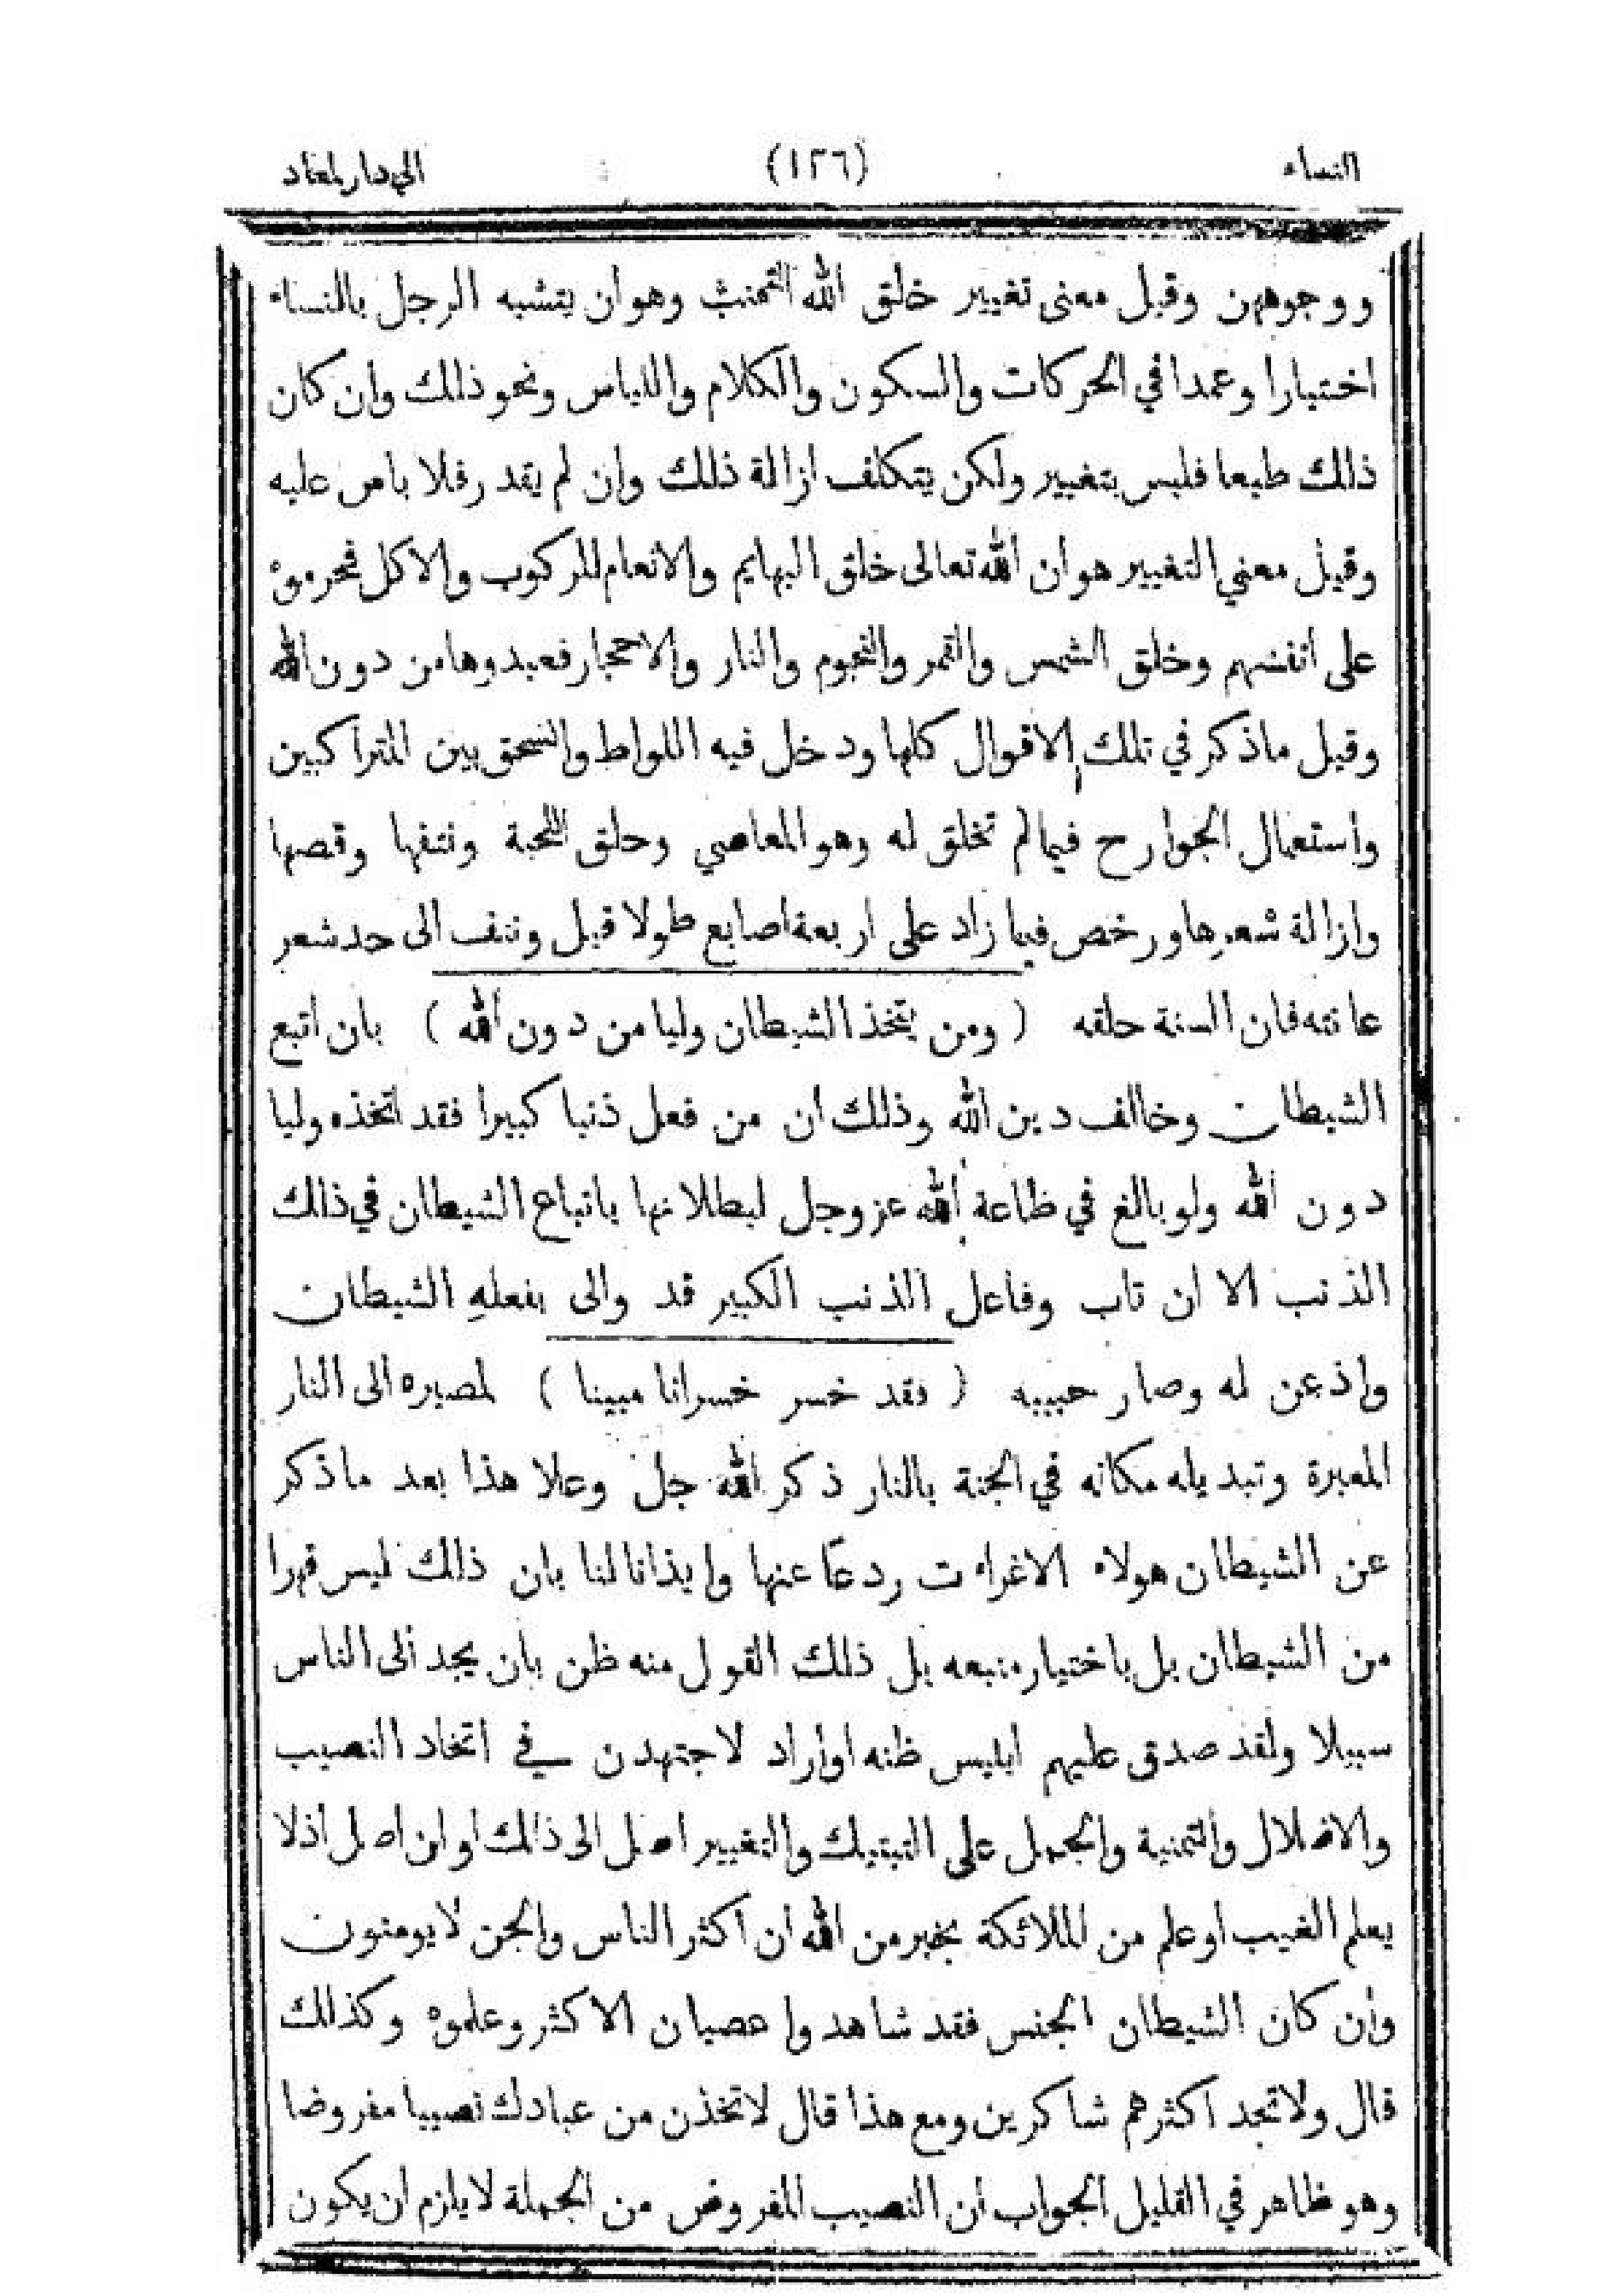 النساء (١٢٦) الى دار المعاد
ووجوههن وقيل معنى تغيير خلق الله التخنث وهو ان يتشبه الرجل بالنساء
اختيارا وعمدا في الحركات والسكون والكلام واللباس ونحو ذلك وان كان
ذلك طبعا فليس بتغيير ولكن يتكلف ازالة ذلك وان لم يقدر فلا بأس عليه
وقيل معني التغيير هو ان الله تعالى خلق البهايم والانعام للركوب والاكل فحرموه
على انفسهم وخلق الشمس والقمر والنجوم والنار والاحجار فعبدوها من دون الله
وقيل ماذكر في تلك الاقوال كلها ودخل فيه اللواط والسحق بين المتراكبين
واستعمال الجوارح فيما لم تخلق له وهو المعاصي وحلق اللحية ونتفها وقصها
وازالة شعرها ورخص فيما زاد على اربعة اصابع طولا قيل وننف الى حد شعر
عانته فان السنة حلقه ( ومن يتخذ الشيطان وليا من دون الله ) بان اتبع
الشيطان وخالف دين الله وذلك ان من فعل ذنبا كبيرا فقد اتخذه وليا
دون الله ولو بالغ في طاعة الله عز وجل لبطلانها باتباع الشيطان في ذلك
الذنب الا ان تاب وفاعل الذنب الكبير قد والى بفعله الشيطان
واذعن له وصار حبيبه ( فقد خسر خسرانا مبينا ) لمصيره الى النار
المعبرة وتبديله مكانه في الجنة بالنار ذكر الله جل وعلا هذا بعد ما ذكر
عن الشيطان هولاء الاغراءت ردعا عنها وايذانا لنا بان ذلك ليس قهرا
من الشيطان بل باختيار متبعه بل ذلك القول منه ظن بان يجد الى الناس
سبيلا ولقد صدق عليهم ابليس ظنه او اراد لاجتهدن في اتخاد النصيب
والاضلال والتمنية والحمل على التبتيك والتغيير اصل الى ذلك او لن اصل اذلا
يعلم الغيب او علم من الملائكة بخبر من الله ان اكثر الناس والجن لا يومنون
وان كان الشيطان الجنس فقد شاهدوا عصيان الاكثر وعلموه وكذلك
قال ولا تجد اكثرهم شاكرين ومع هذا قال لاتخذن من عبادك نصيبا مفروضا
وهو ظاهر في القليل الجواب ان النصيب المفروض من الجملة لا يلزم ان يكون